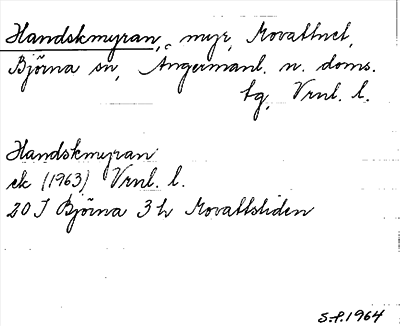 Handskmyran, myr, Movattnet,
Björna sn, Ångermanl. n. doms.
tg, Vrnl. l.
Handskmyran
ek (1963) Vrnl. l.
20 J Björna 3 h Movattsliden
S.P. 1964